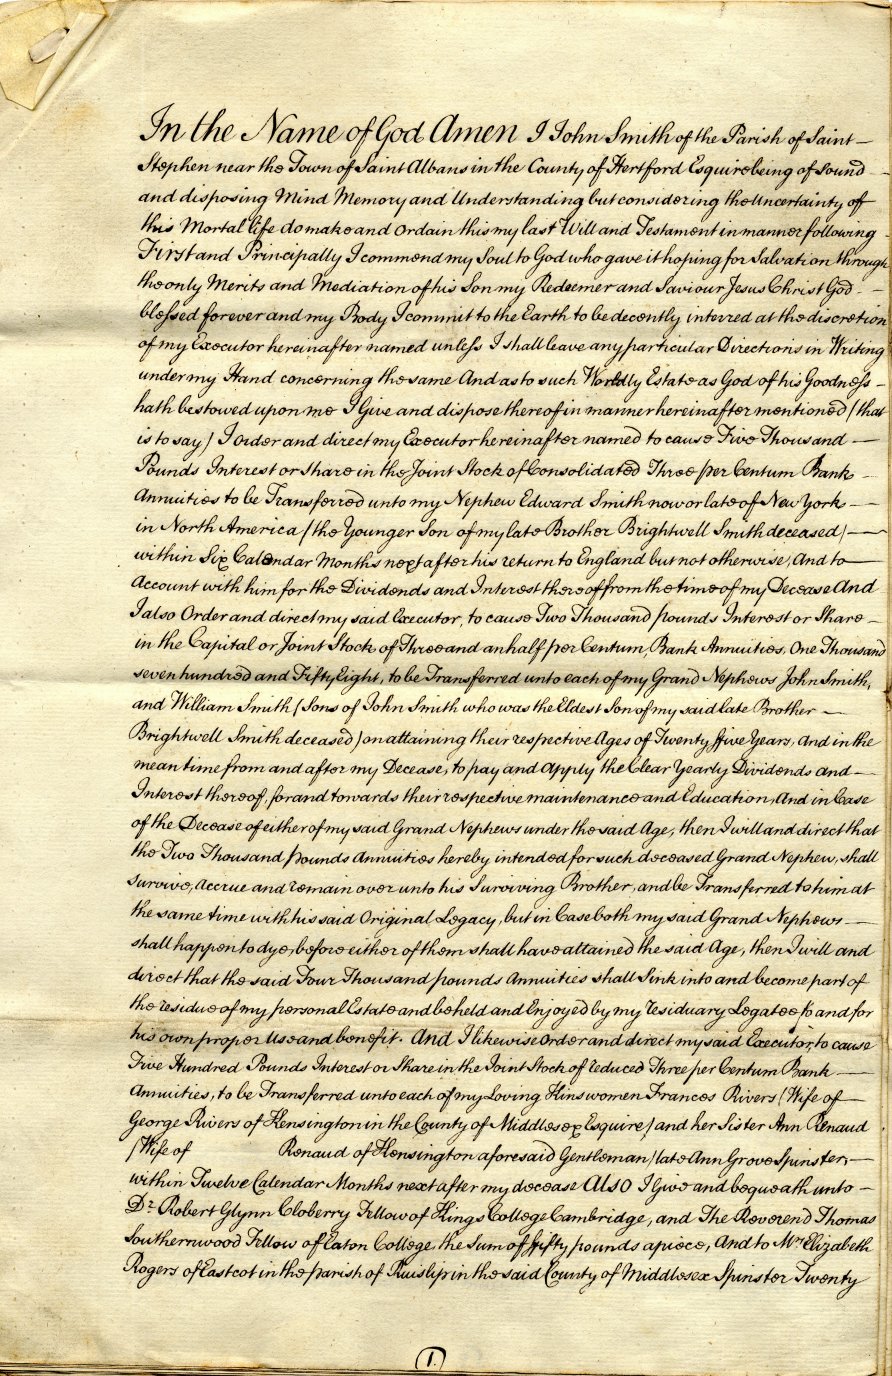 In the Name of God Amen I John Smith of the Parish of Saint —
Stephen near the Town of Saint Albans in the County of Hertford Esquire being of Sound
and disposing Mind Memory and Understanding but considering the Uncertainty off
this Mortal life do make and Ordain this my last Will and Testament in manner following —
First and Principally I commend my Soul to God who gave it hoping for Salvation through
the only Merits and Mediation of his Son my Redeemer and Saviour Jesus Christ God —
blessed forever and my Body I commit to the Earth to be decently interred at the discretion
of my Executor hereinafter named unless I shall leave any particular Directions in Writing
under my Hand concerning the same And as to such Worldly Estate as God of his Goodness —
hath bestowed upon me I Give and dispose thereof in manner hereinafter mentioned (that
is to say) I order and direct my Executor hereinafter named to cause Five Thousand —
Pounds Interest or share in the Joint Stock of Consolidated Three per Centum Bank —
Annuities to be Transferred unto my Nephew Edward Smith now or late of New York —
in North America (the Younger Son of my late Brother Brightwell Smith deceased) —
within Six Calendar Months next after his return to England but not otherwise, And to —
Account with him for the Dividends and Interest thereoff from the time of my Decease And
I also Order and direct my said Executor, to cause Two Thousand pounds Interest or Share —
in the Capital or Joint Stock, of Three and an half per Centum, Bank Annuities, One Thousand
seven hundred and Fifty Eight, to be Transferred unto each of my Grand Nephews John Smith,
and William Smith (Sons of John Smith who was the Eldest Son of my said late Brother —
Brightwell Smith deceased) on attaining their respective Ages of Twenty ffive Years, And in the
mean time from and after my Decease, to pay and Apply the Clear Yearly Dividends and —
Interest thereof, for and towards their respective maintenance and Education, And in Case
of the Decease of either of my said Grand Nephews under the said Age, then I will and direct that
the Two Thousand pounds Annuities hereby intended for such deceased Grand Nephew, shall
survive, Accrue and remain over unto his Surviving Brother, and be Transferred to him at
the same time with his said Original Legacy, but in Case both my said Grand Nephews —
shall happen to dye, before either of them shall have attained the said Age, then I will and
direct that the said Four Thousand pounds Annuities shall Sink into and become part of
the residue of my personal Estate and be held and Enjoyed by my residuary Legatee, to and for
his own proper Use and benefit. And I likewise order and direct my said Executor, to cause
Five Hundred Pounds Interest or Share in the Joint Stock of reduced Three per Centum Bank —
Annuities, to be Transferred unto each of my Loving Kinswomen Frances Rivers (Wife of —
George Rivers of Kensington in the County of Middlesex Esquire) and her Sister Ann Renaud
(Wife of Renaud of Kensington aforesaid Gentleman) late Ann Grove Spinster, —
within Twelve Calendar Months next after my decease Also I Give and bequeath unto —
Dr. Robert Glynn Cloberry Fellow of Kings College Cambridge, and The Reverend Thomas
Southernwood Fellow of Eaton College, the Sum of ffifty pounds apiece, And to Mrs Elizabeth
Rogers of Eastcot in the parish of Ruislip in the said County of Middlesex Spinster Twenty
1.